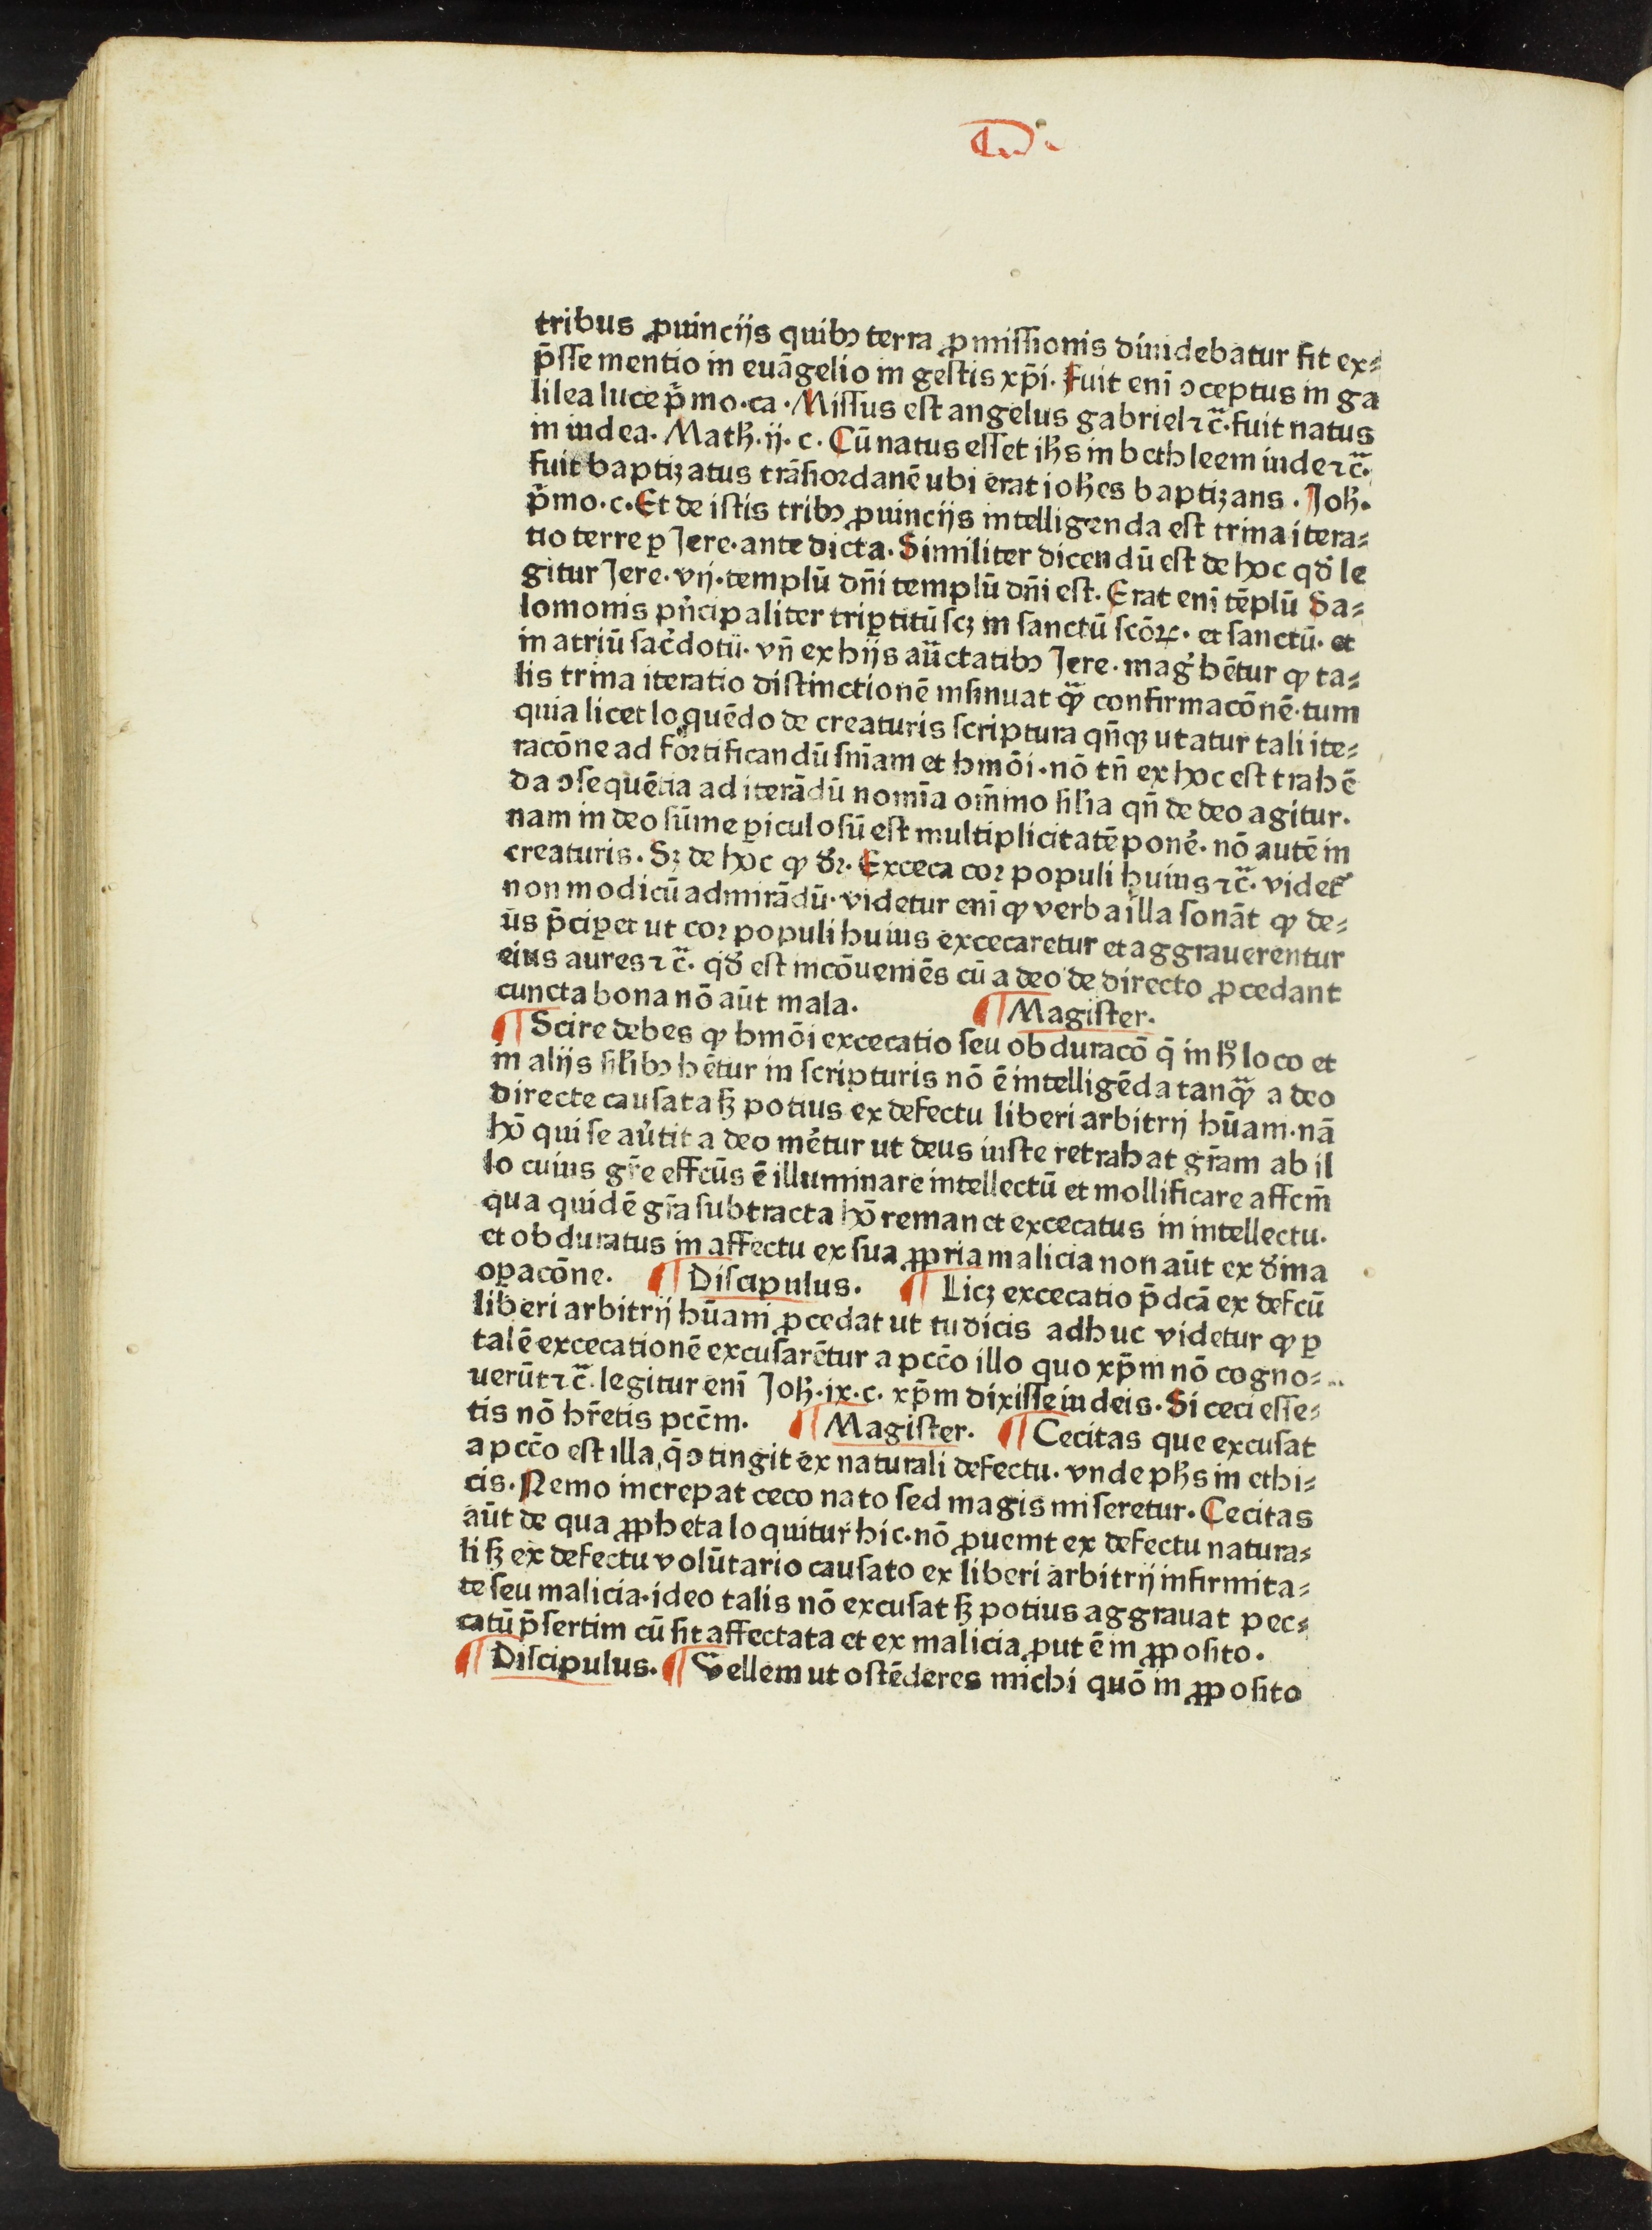 tribus ꝓuincijs quibꝰ terra ꝓmissionis diuidebatur fit ex⸗
p̄sse mentio in euāgelio in gestis xp̄i. Fuit enī ꝯceptus in ga
lilea luce p̄mo.ca. Missus est angelus gabriel ⁊c̄. fuit natus
in iudea. Math̄.ij.c. Cū natus esset ih̄s in bethleem iude ⁊c̄.
fuit baptizatus trāsiordanē ubi erat ioh̄es baptizans. Joh̄.
p̄mo.c. Et de istis tribꝰ ꝓuincijs intelligenda est trina itera⸗
tio terre ꝑ Jere. ante dicta. Similiter dicendū est de hoc qd̄ le
gitur Jere. vij. templū dn̄i templū dn̄i est. Erat enī tēplū Sa⸗
lomonis pn̄cipaliter triꝑtitū scꝫ in sanctū scōꝝ. et sanctū. et
in atriū sac̄dotū. vn̄ ex hijs au̅ctatibꝰ Jere. maḡ hētur ꝙ ta⸗
lis trina iteratio distinctionē insinuat qꝫ̄ confirmacōnē. tum
quia licet loquēdo de creaturis scriptura qn̄qꝫ utatur tali ite⸗
racōne ad fortificandū sn̄iam et hmōi. nō tn̄ ex hoc est trahē
da ꝯsequētia ad iterādū nomīa om̄ino sil̄ia qn̄ de deo agitur.
nam in deo sūme ꝑiculosū est multiplicitatē ponē. nō autē in
creaturis. Sꝫ de hoc ꝙ dr̄. Exceca cor populi huius ⁊c̄. videt᷑
non modicū admirādū. videtur enī ꝙ verba illa sonāt ꝙ de⸗
us p̄ciꝑet ut cor populi huius excecaretur et aggrauerentur
eius aures ⁊c̄. qd̄ est incōueniēs cū a deo de directo ꝓcedant
cuncta bona nō aūt mala. ¶ Magister.
¶ Scire debes ꝙ hmōi excecatio seu obduracō q̄ in h̄ loco et
in alijs sil̄ibꝰ hētur in scripturis nō ē intelligēda tanqꝫ̄ a deo
directe causata sꝫ potius ex defectu liberi arbitrij hūam. nā
hō qui se au̅tit a deo mētur ut deus iuste retrahat gr̄am ab il
lo cuius gr̄e effcūs ē illuminare intellectū et mollificare affcm̄
qua quidē gr̄a subtracta hō remanet excecatus in intellectu.
et obduratus in affectu ex sua ꝓpria malicia non aūt ex d̄ina
oꝑacōne. ¶ Discipulus. ¶ Licꝫ excecatio p̄dcā ex defcū
liberi arbitrij hūani ꝓcedat ut tu dicis adhuc videtur ꝙ ꝑ
talē excecationē excusarētur a pccō illo quo xp̄m nō cogno⸗
uerūt ⁊c̄. legitur enī Joh̄.ix.c. xp̄m dixisse iudeis. Si ceci esse⸗
tis nō hr̄etis pccm̄. ¶ Magister. ¶ Cecitas que excusat
a pccō est illa, q̄ ꝯtingit ex naturali defectu. vnde ph̄s in ethi⸗
cis. Nemo increpat ceco nato sed magis miseretur. Cecitas
aūt de qua ꝓpheta loquitur hic. nō ꝓuenit ex defectu natura⸗
li sꝫ ex defectu volūtario causato ex liberi arbitrij infirmita⸗
te seu malicia. ideo talis nō excusat sꝫ potius aggrauat pec⸗
catū p̄sertim cū sit affectata et ex malicia ꝓut ē in ꝓposito.
¶ Discipulus. ¶ Vellem ut ostēderes michi quō in ꝓposito